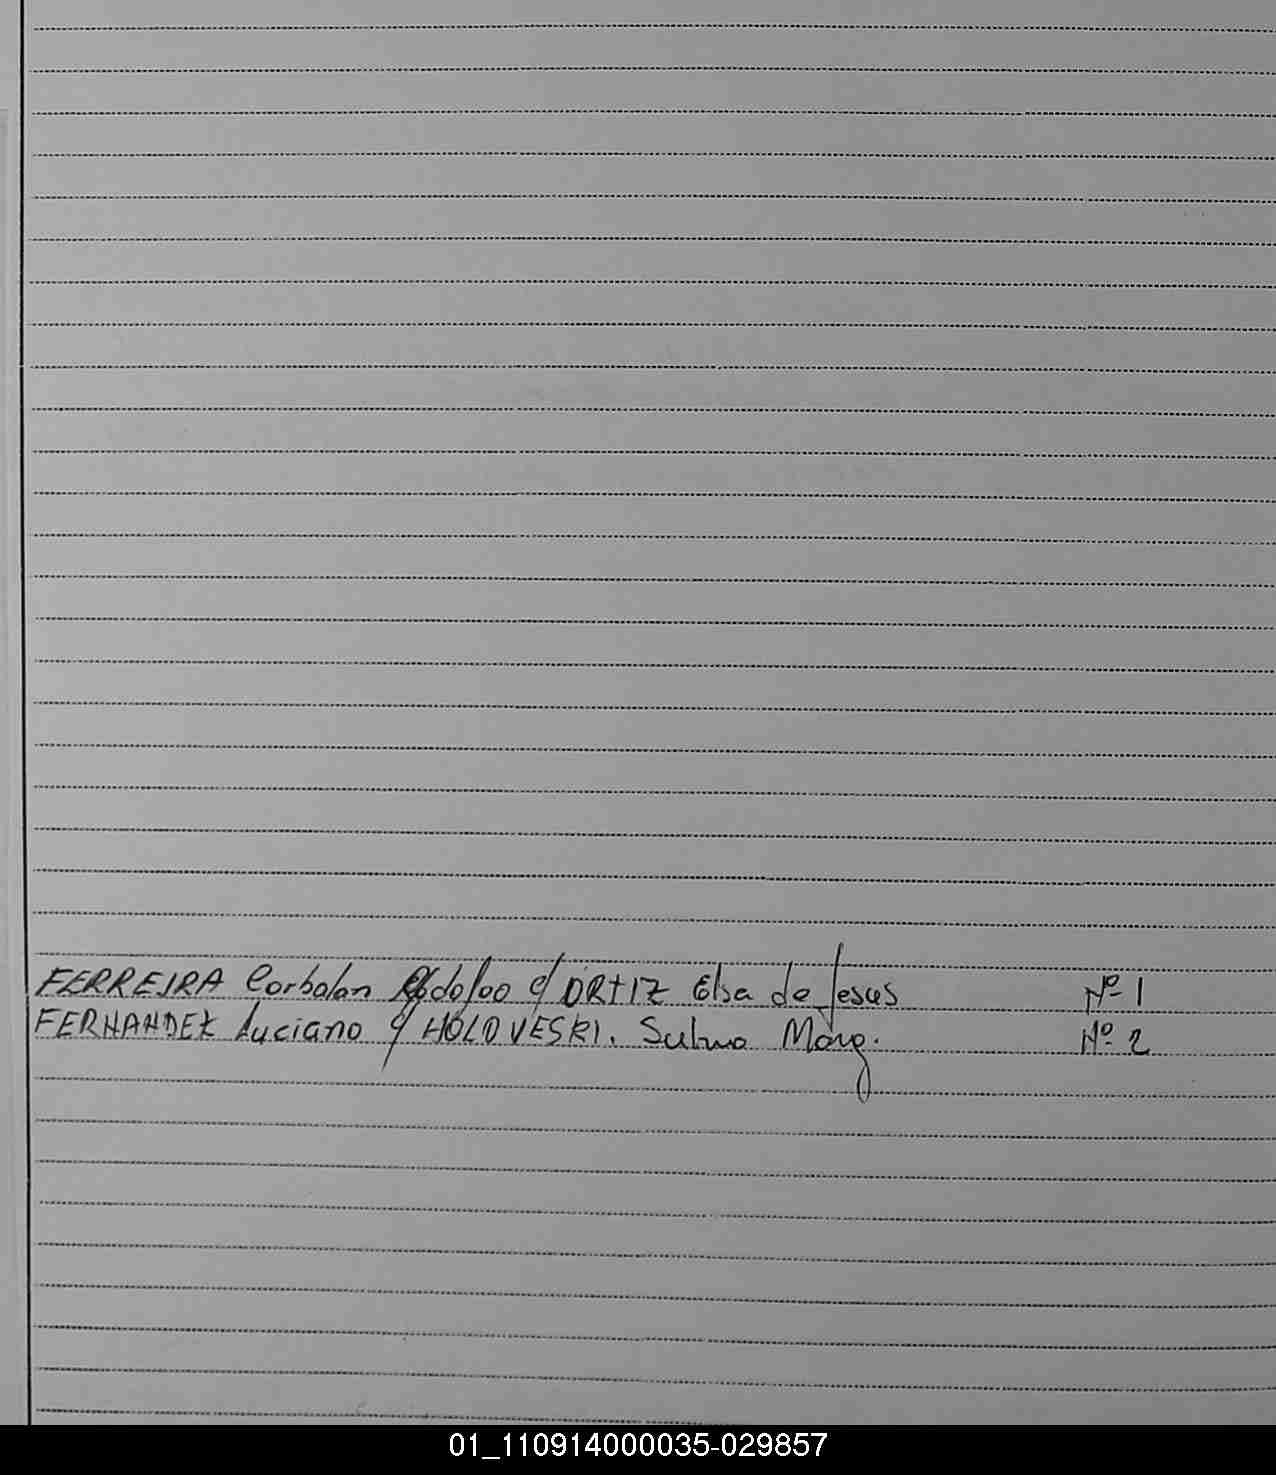 FERREIRA Corbalan Rodolfo c/ ORTIZ Elsa de Jesus Nº 1
FERNANDEZ Luciano c/ HOLOVESKI. Sulma Marg. Nº 2
01_110914000035-029857